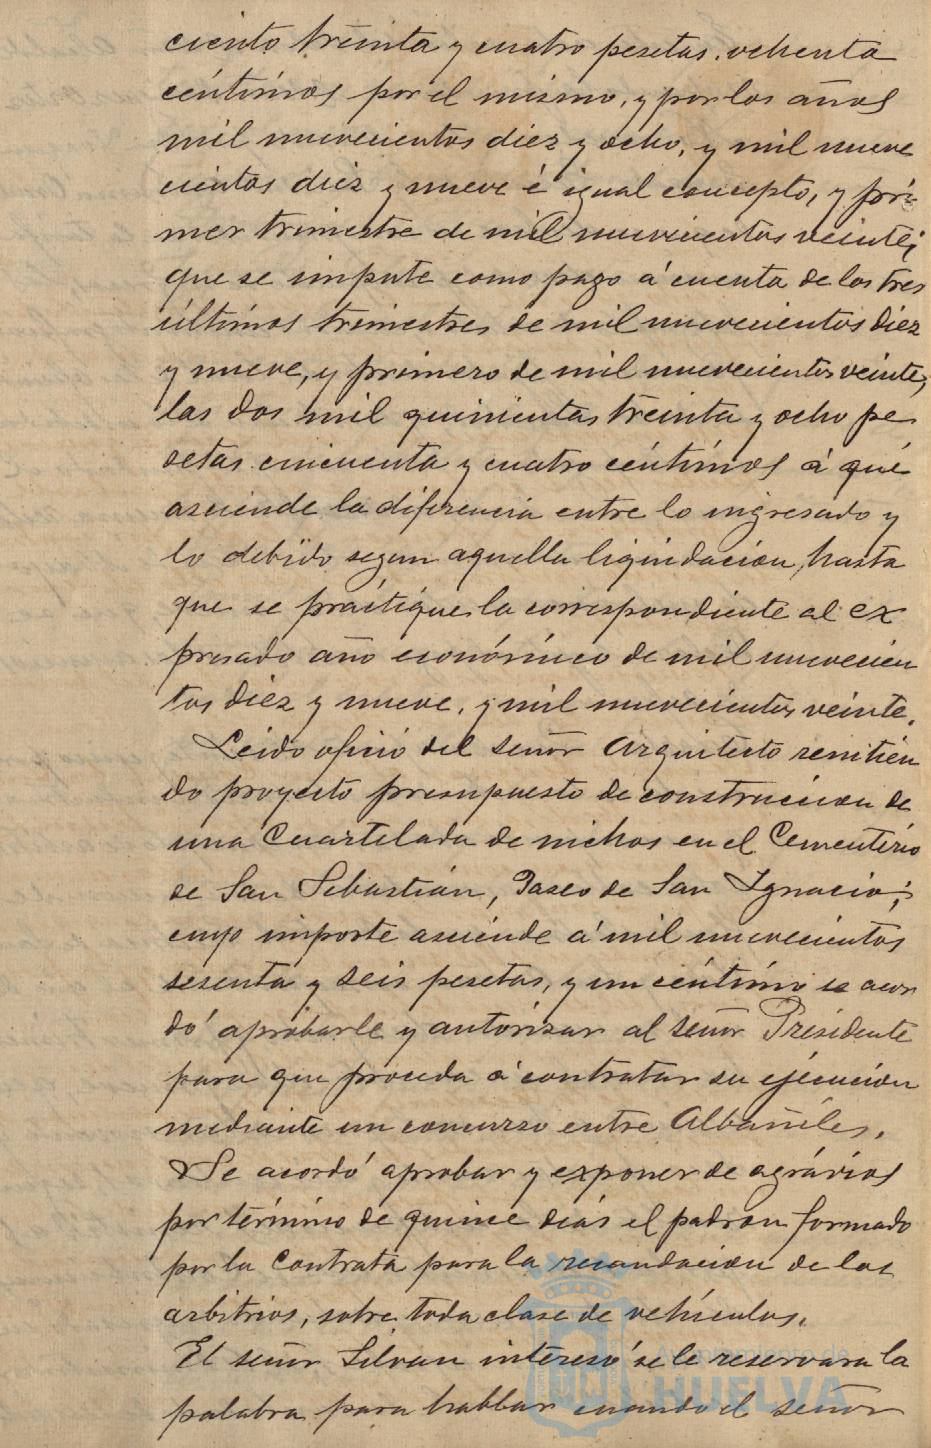 ciento treinta y cuatro pesetas, ochenta
céntimos por el mismo, y por los años
mil nuevecientos diez y ocho, y mil nueve
cientos diez y nueve é igual concepto, y pri-
mer trimestre de mil nuevecientos veinte;
que se impute como pago á cuenta de los tres
últimos trimestres de mil nuevecientos diez
y nueve, y primero de mil nuevecientos veinte,
las dos mil quinientas treinta y ocho pe
setas cincuenta y cuatro céntimos á qué
asciende la diferencia entre lo ingresado y
lo debido segun aquella liquidacion, hasta
que se práctique la correspondiente al ex
presado año económico de mil nuevecien
tos diez y nueve, y mil nuevecientos veinte.
Leido oficio del señor Arquitecto remitien
do proyecto presupuesto de construccion de
una Cuartelada de nichos en el Cementerio
de San Sebastián, Paseo de San Ignacio;
cuyo importe asciende á mil nuevecientos
sesenta y seis pesetas, y un céntimo se acor
dó aprobarle y autorizar al señor Presidente
para que proceda á contratar su ejecucion
mediante un concurso entre Albañiles.
Se acordó aprobar y exponer de agrávios
por término de quince dias el padron formado
por la Contrata para la recaudacion de los
arbitrios, sobre toda clase de vehículos.
El señor Silvan interesó se le reservara la
palabra para hablar cuando el señor
Ayuntamiento de
HUELVA